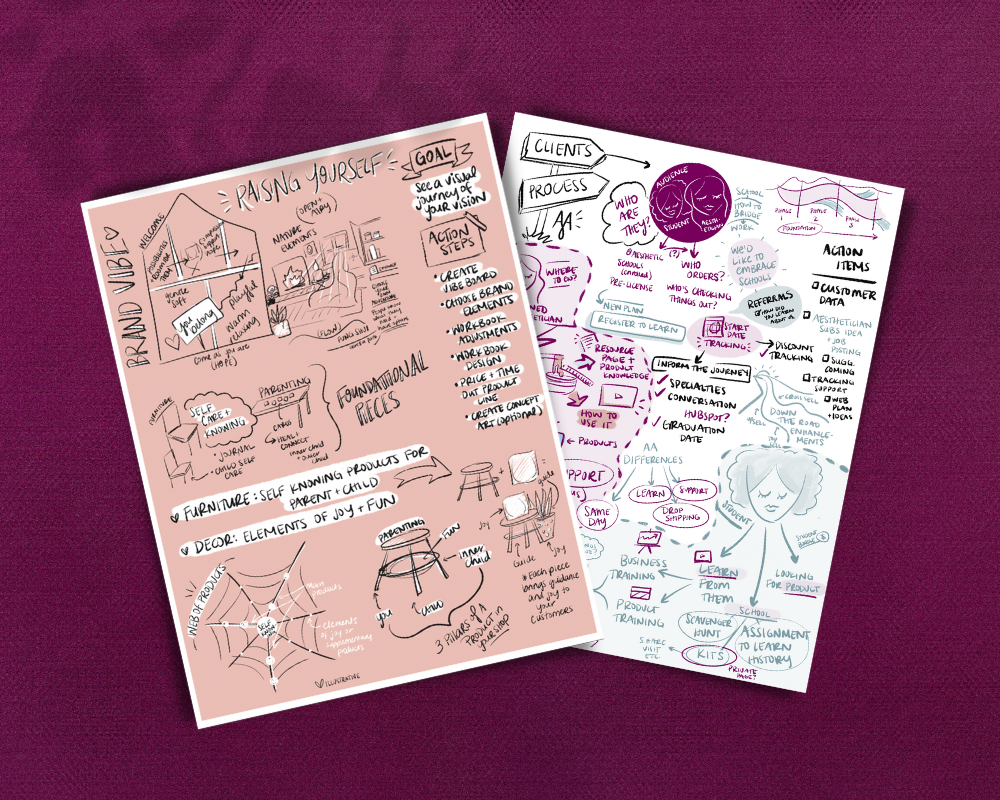 RAISNG YOURSELF
GOAL
see a visual
journey of
your vision
ACTION
STEPS
• CREATE
VIBE BOARD
• CHOOSE BRAND
ELEMENTS
• WORKBOOK
ADJUSTMENTS
• WORKBOOK
DESIGN
• PRICE + TIME
OUT PRODUCT
LINE
• CREATE CONCEPT
ART (optional)
BRAND VIBE
WELCOME
gentle
soft
playful
warm
inviting
you
belong
come as you are
(HOPE)
(OPEN +
AIRY)
NATURE
ELEMENTS
(FLOW)
FURNITURE
SELF
CARE +
KNOWING
• JOURNAL
• CHILD SELF
CARE
PARENTING
CARDS
HEAL +
CONNECT
inner child
+ outer
child
FOUNDATIONAL
PIECES
FURNITURE: SELF KNOWING PRODUCTS FOR
PARENT + CHILD
DECOR: ELEMENTS OF JOY + FUN
WEB OF PRODUCTS
SELF
KNOWING
main
products
elements
of joy or
supplementing
products
PARENTING
FUN
inner
child
you
CHILD
3 PILLARS OF A
PRODUCT in
your shop
Joy
Guide
Joy
* Each piece
brings guidance
and joy to
your
customers
ILLUSTRATIVE
CLIENTS
PROCESS
AA
WHO
ARE
THEY?
AUDIENCE
STUDENT
AESTH-
ETICIAN
AESTHETIC
SCHOOLS
PRE-LICENSE
(?)
WHO
ORDERS?
WHO'S CHECKING
THINGS OUT?
SCHOOL
HOW TO
BRIDGE
WORK
WE'D
LIKE TO
EMBRACE
SCHOOLS
PHASE
1
PHASE
2
PHASE
3
FOUNDATION
ACTION
ITEMS
CUSTOMER
DATA
AESTHETICIAN
SUBS IDEA
+ JOB
POSTING
SUGG.
COMING
TRACKING
SUPPORT
WEB
PLAN
+ IDEAS
REFERRALS
HOW DID
YOU LEARN
ABOUT
WHERE
TO GO?
NEW PLAN
REGISTER TO LEARN
START
DATE
TRACKING
DISCOUNT
TRACKING
RESOURCE
PAGE +
PRODUCT
KNOWLEDGE
HOW TO
USE IT
PRODUCTS
INFORM THE JOURNEY
SPECIALTIES
CONVERSATION
HUBSPOT?
GRADUATION
DATE
CROSS SELL
DOWN
THE ROAD
ENHANCE-
MENTS
AA
DIFFERENCES
LEARN
SUPPORT
DROP
SHIPPING
SUPPORT
SAME
DAY
STUDENT
BUSINESS
TRAINING
PRODUCT
TRAINING
LEARN
FROM
THEM
LOOKING
FOR PRODUCT
SCHOOL
SCAVENGER
HUNT
KITS
ASSIGNMENT
TO LEARN
HISTORY
SHARE
VISIT
ETC.
PRIVATE
PAGE?